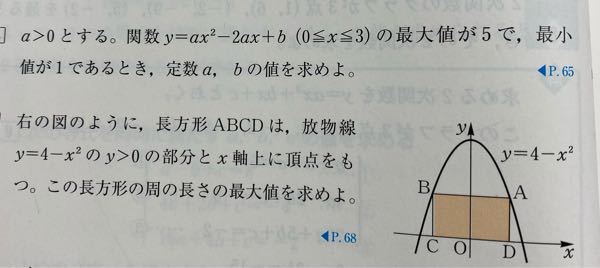 a>0とする。関数y=ax²-2ax+b (0≦x≦3) の最大値が5で，最小
値が1であるとき，定数a，bの値を求めよ。
◀P.65
右の図のように，長方形ABCDは，放物線
y=4-x²のy>0の部分とx軸上に頂点をも
つ。この長方形の周の長さの最大値を求めよ。
◀P.68
y
y=4-x²
B
A
C
O
D
x